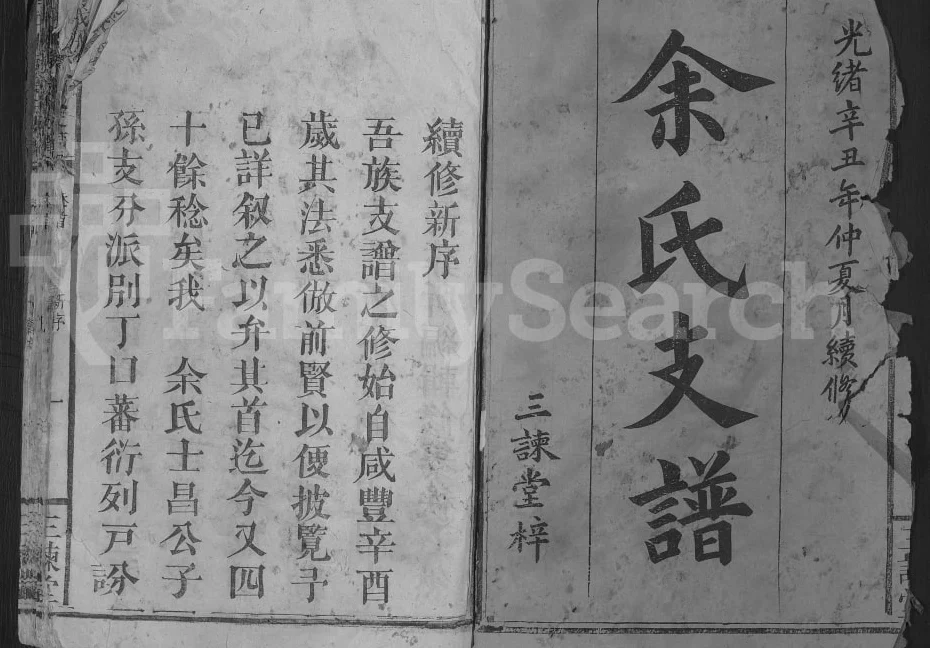 光緒辛丑年仲夏月續修
余氏支譜
三諫堂梓
續修新序
吾族支譜之修始自咸豐辛酉
歲其法悉倣前賢以便披覽予
已詳叙之以弁其首迄今又四
十餘稔矣我 余氏士昌公子
孫支分派別丁口蕃衍列戸
新序
一
三諫堂
FamilySearch